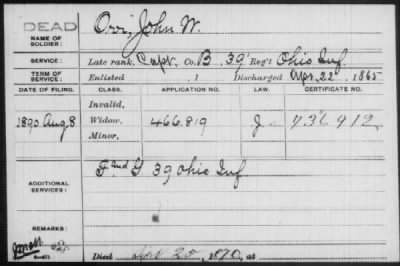 DEAD
NAME OF SOLDIER: Orr, John W.
SERVICE: Late rank, Capt, Co. B, 39 Reg't Ohio Inf.
TERM OF SERVICE: Enlisted , 1 Discharged Apr. 22, 1865
DATE OF FILING. CLASS. APPLICATION NO. LAW. CERTIFICATE NO.
Invalid,
1890 Aug 8 Widow, 466.819 J 736912
Minor,
ADDITIONAL SERVICES: F and G 39 Ohio Inf
REMARKS:
Died 25, 1870, at